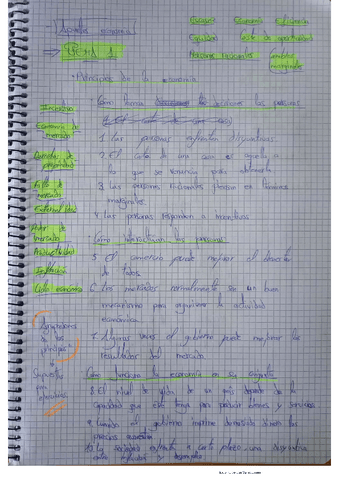 Apuntes economía
Escasez Economía Eficiencia
Equidad Coste de oportunidad
→ TEMA 1
Personas racionales Cambios marginales
· Principios de la economía
· Cómo toman las decisiones las personas
1. Las personas enfrentan disyuntivas
2. El coste de una cosa es aquello a
lo que se renuncia para obtenerla
3. Las personas racionales piensan en términos
marginales.
4. Las personas responden a incentivos
· Cómo interactúan las personas
5. El comercio puede mejorar el bienestar
de todos
6. Los mercados normalmente son un buen
mecanismo para organizar la actividad
económica.
7. Algunas veces el gobierno puede mejorar los
resultados del mercado.
Cómo funciona la economía en su conjunto
8. El nivel de vida de un país depende de la
capacidad que este tenga para producir bienes y servicios
9. Cuando el gobierno imprime demasiado dinero los
precios
10. La sociedad enfrenta a corto plazo una disyuntiva
entre inflación y desempleo
Incentivo
Economía de
mercado
Derechos de
propiedad
Fallo de
mercado
Externalidad
Poder de
mercado
Productividad
Inflación
Ciclo económico
Agrupadores
de los
principios